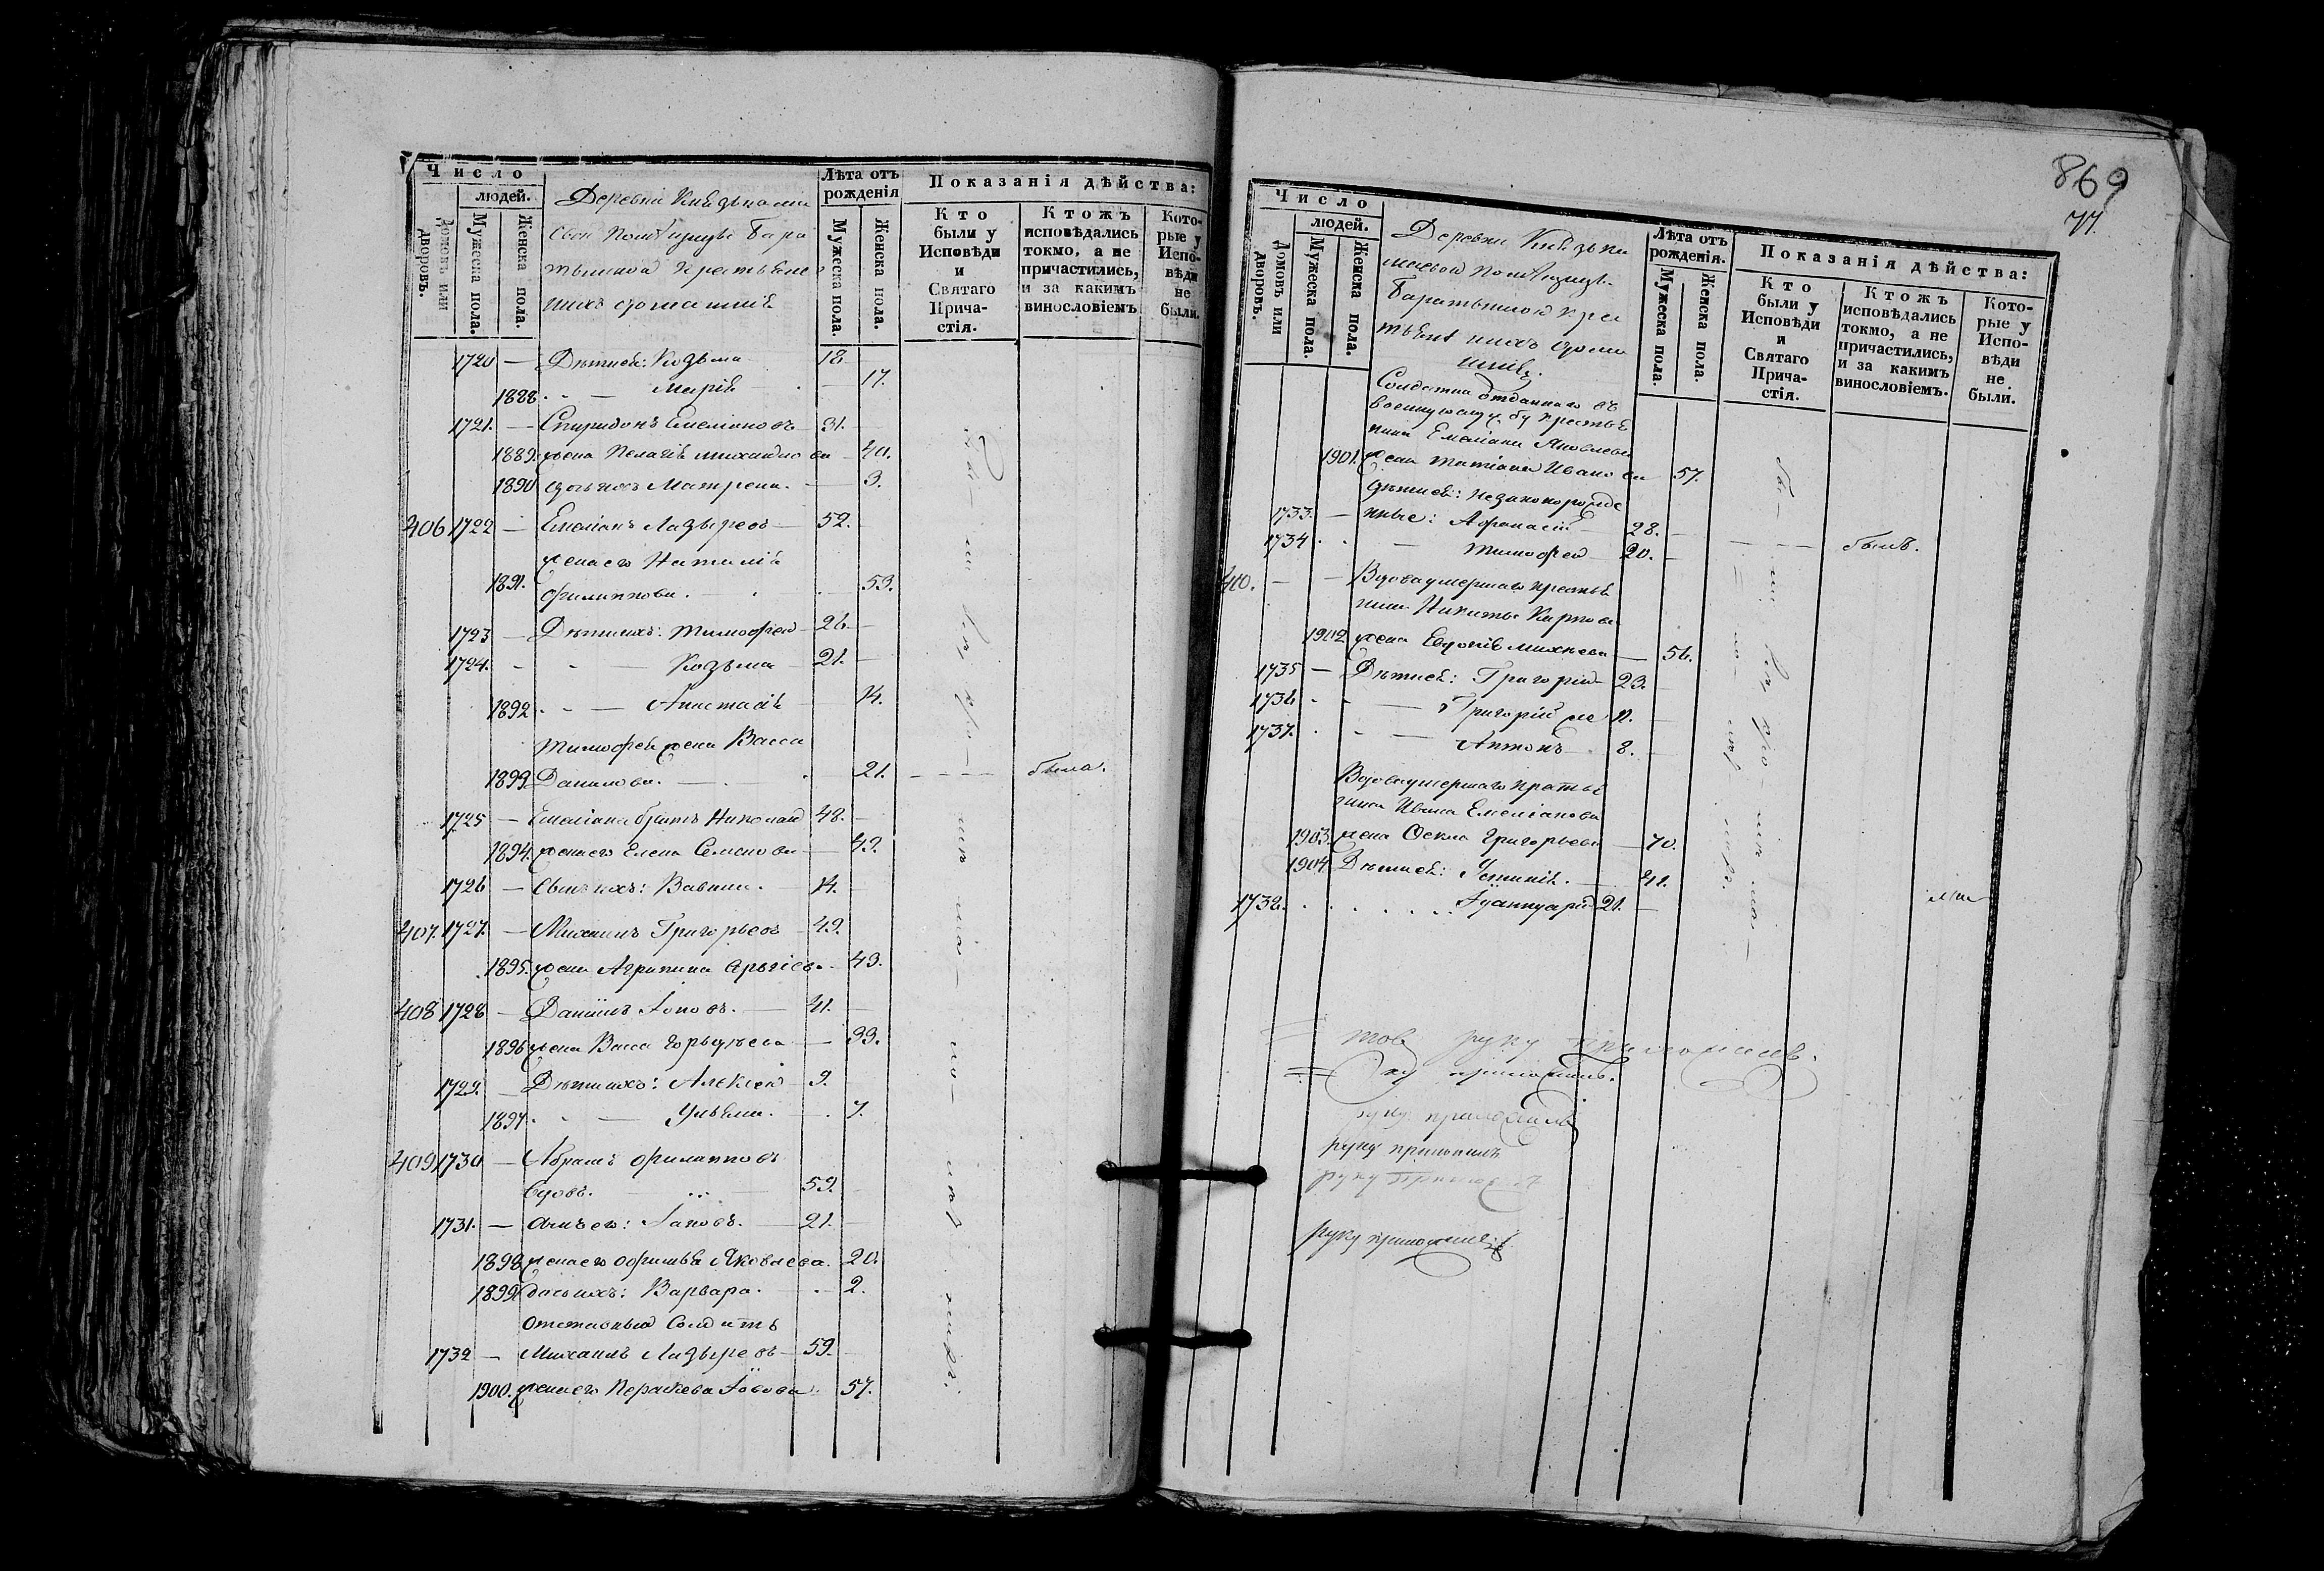 Число
людей.
Домовъ или дворовъ.
Мужеска пола.
Женска пола.
Деревни Князькама
свои Помѣщицы Бара
тынской крестьяне
ихъ домашнiе
Лѣта отъ рожденiя
Мужеска пола.
Женска пола.
Показанiя дѣйства:
Кто были у Исповѣди и Святаго Прича-стiя.
Ктожъ исповѣдались токмо, а не причастились, и за какимъ винословiемъ
Кото-рые у Испо-вѣди не были.
1720 — Дѣти ея: Козьма 18
1888. — Марiя — 17.
1721. — Спиридонъ Емелiановъ 31.
1889. жена Пелагiя Михайлова 40.
1890 дочь ихъ Матрена. — 3.
406 1722 — Емелiанъ Лазыревъ — 52.
жена его Наталiя
1891. Филиппова. — 53.
1723 — Дѣти ихъ: Тимофей 26.
1724. — Козьма 21.
1892 — Анастасiя 14.
Тимофея жена Васса
1893 Данилова. — 21. — была.
1725 — Емелiана братъ Николай 48.
1894. жена его Елена Семенова — 49.
1726 — Сынъ ихъ: Вавила. 14.
407. 1727. — Михаилъ Григорьевъ 49.
1895. жена Агрипина 43.
408 1728 — Данiилъ Iоновъ. — 41.
1896 жена Васса Гордѣева — 33.
1729. — Дѣти ихъ: Алексѣй 9.
1897. — Ульяна. — 7.
409 1730 — Абрамъ Филипповъ
вдовъ. — 59.
1731. — Сынъ его: Iаковъ. — 21.
1898 жена его Яковлева. 20.
1899 дочь ихъ: Варвара. — 2.
Отставный Солдатъ
1732 — Михаилъ Лазыревъ 59.
1900. жена его Параскева Iовова. 57.
869
77.
Число
людей.
Домовъ или дворовъ.
Мужеска пола.
Женска пола.
Деревни Князька
масвой Помѣщицы
Баратынской кре
стьяне ихъ дома
шнiе.
Лѣта отъ рожденiя.
Мужеска пола.
Женска пола.
Показанiя дѣйства:
Кто были у Исповѣди и Святаго Прича-стiя.
Ктожъ исповѣдались токмо, а не причастились, и за какимъ винословiемъ.
Кото-рые у Испо-вѣди не были.
Солдатка отданнаго въ
военную службу крестья
нина Емелiана Яковлева
1901. жена Татiана Иванова 57.
Дѣти ея: незаконорожде
1733. — нные: Афанасiй 28.
1734 — Тимофей 20. — былъ.
410. — Вдова умершаго крестья
нина Никиты Карпова
1902 жена Евдокiя Михеева — 56.
1735 — Дѣти ея: Григорiй 23.
1736 — Григорiй же 12.
1737. — Антонъ. 8.
Вдова умершаго крестья
нина Ивана Емелiанова
1903. жена Фекла Григорьева — 70.
1904 Дѣти ея: Устинiя. — 41.
1738. Iуаннуарiй 21.
руку приложилъ.
приложилъ.
руку приложилъ
руку приложилъ
руку приложилъ
руку приложилъ